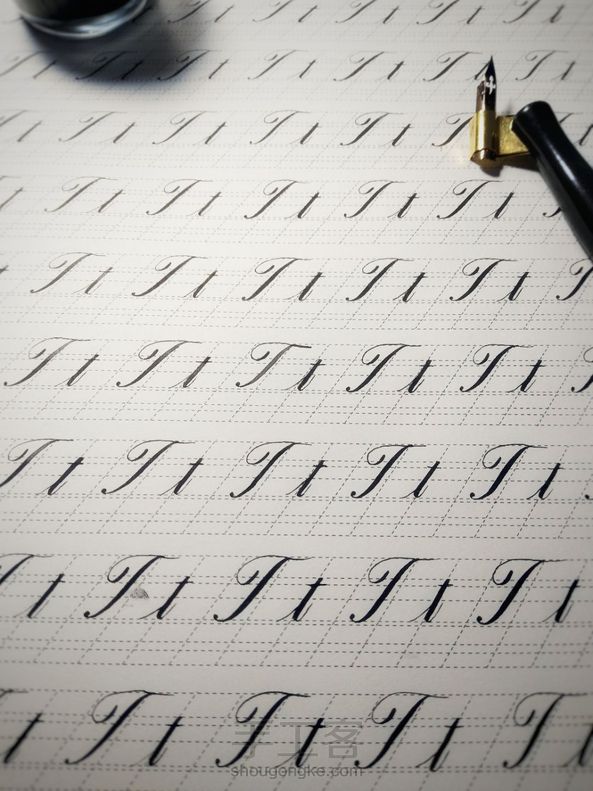 T t T t T t T t T t T t
t T t T t T t T t T t T t
T t T t T t T t T t T t
t T t T t T t T t T t
T t T t T t T t T t T
T t T t T t T t T t
T t T t T t T t T t
T t T t T t T t T t
t T t T t T t T t
手工客
shougongke.com